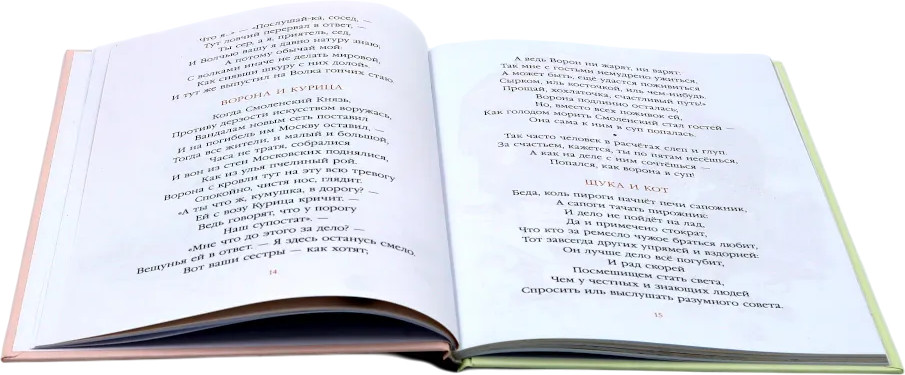 Что я..» — «Послушай-ка, сосед, —
Тут ловчий перервал в ответ, —
Ты сер, а я, приятель, сед,
И Волчью вашу я давно натуру знаю;
А потому обычай мой:
С волками иначе не делать мировой,
Как снявши шкуру с них долой».
И тут же выпустил на Волка гончих стаю.
ВОРОНА И КУРИЦА
Когда Смоленский Князь,
Противу дерзости искусством воружась,
Вандалам новым сеть поставил
И на погибель им Москву оставил, —
Тогда все жители, и малый и большой,
Часа не тратя, собралися
И вон из стен Московских поднялися,
Как из улья пчелиный рой.
Ворона с кровли тут на эту всю тревогу
Спокойно, чистя нос, глядит.
«А ты что ж, кумушка, в дорогу? —
Ей с возу Курица кричит. —
Ведь говорят, что у порогу
Наш супостат». —
«Мне что до этого за дело? —
Вещунья ей в ответ. — Я здесь останусь смело.
Вот ваши сестры — как хотят;
14
А ведь Ворон ни жарят, ни варят:
Так мне с гостьми немудрено ужиться,
А может быть, ещё удастся поживиться
Сырком, иль косточкой, иль чем-нибудь.
Прощай, хохлаточка, счастливый путь!»
Ворона подлинно осталась;
Но, вместо всех поживок ей,
Как голодом морить Смоленский стал гостей —
Она сама к ним в суп попалась.
•
Так часто человек в расчётах слеп и глуп.
За счастьем, кажется, ты по пятам несёшься,
А как на деле с ним сочтёшься —
Попался, как ворона в суп!
ЩУКА И КОТ
Беда, коль пироги начнёт печи сапожник,
А сапоги тачать пирожник:
И дело не пойдёт на лад,
Да и примечено стократ,
Что кто за ремесло чужое браться любит,
Тот завсегда других упрямей и вздорней:
Он лучше дело всё погубит,
И рад скорей
Посмешищем стать света,
Чем у честных и знающих людей
Спросить иль выслушать разумного совета.
15